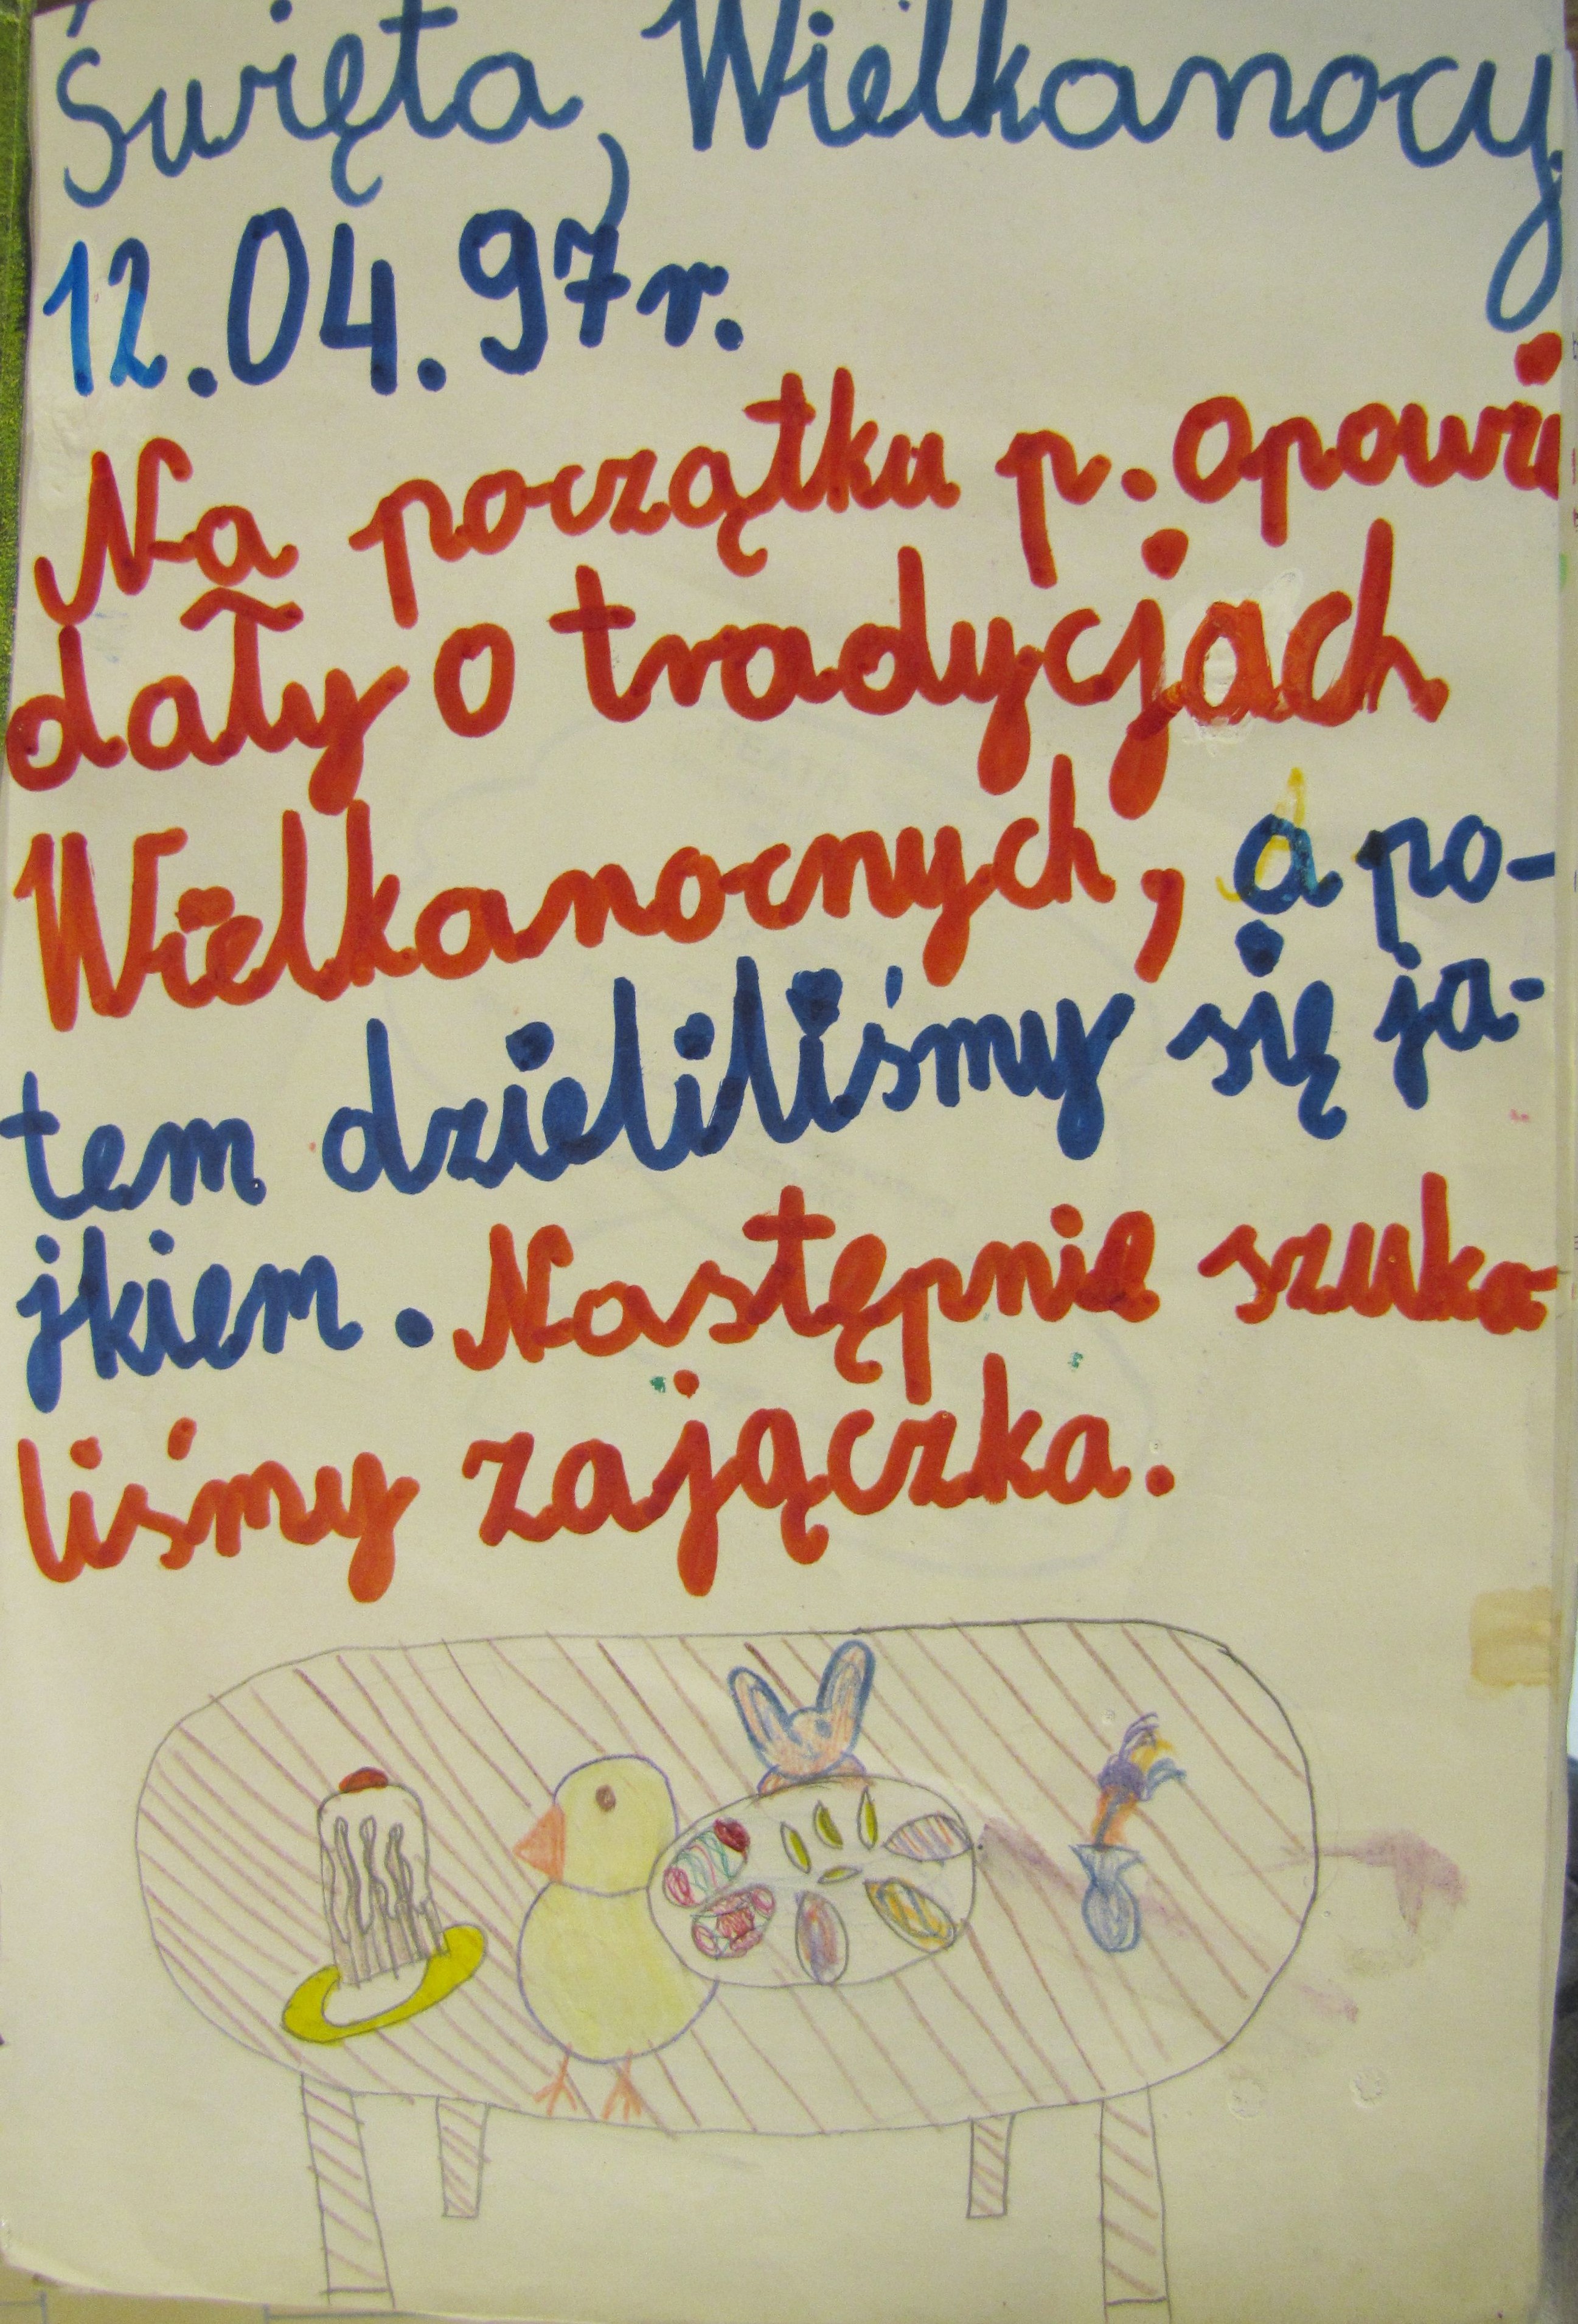 Święta Wielkanocy
12.04.97r.
Na początku p. opowia
dały o tradycjach
Wielkanocnych, a po-
tem dzieliliśmy się ja-
jkiem. Następnie szuka-
liśmy zajączka.